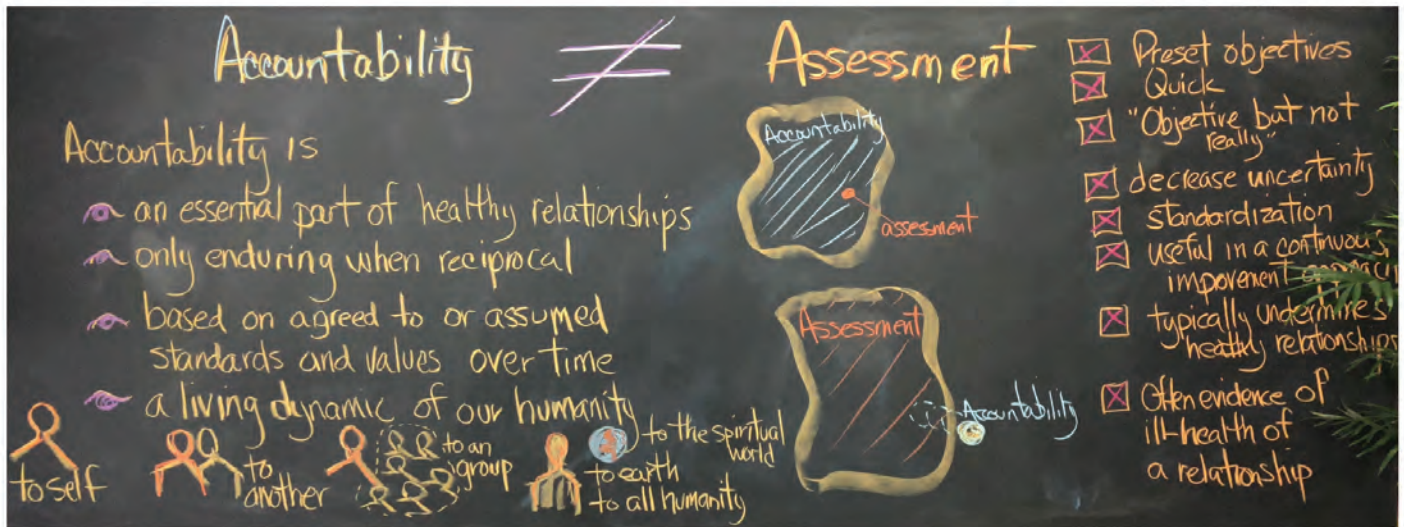 Accountability ≠ Assessment
Accountability is
an essential part of healthy relationships
only enduring when reciprocal
based on agreed to or assumed
standards and values over time
a living dynamic of our humanity
to self
to
another
to an
group
to the spiritual
world
to earth
to all humanity
Accountability
assessment
Assessment
Accountability
Preset objectives
Quick
"Objective but not
really"
decrease uncertainty
standardization
useful in a continuous
improvement
typically undermines
healthy relationships
Often evidence of
ill-health of
a relationship